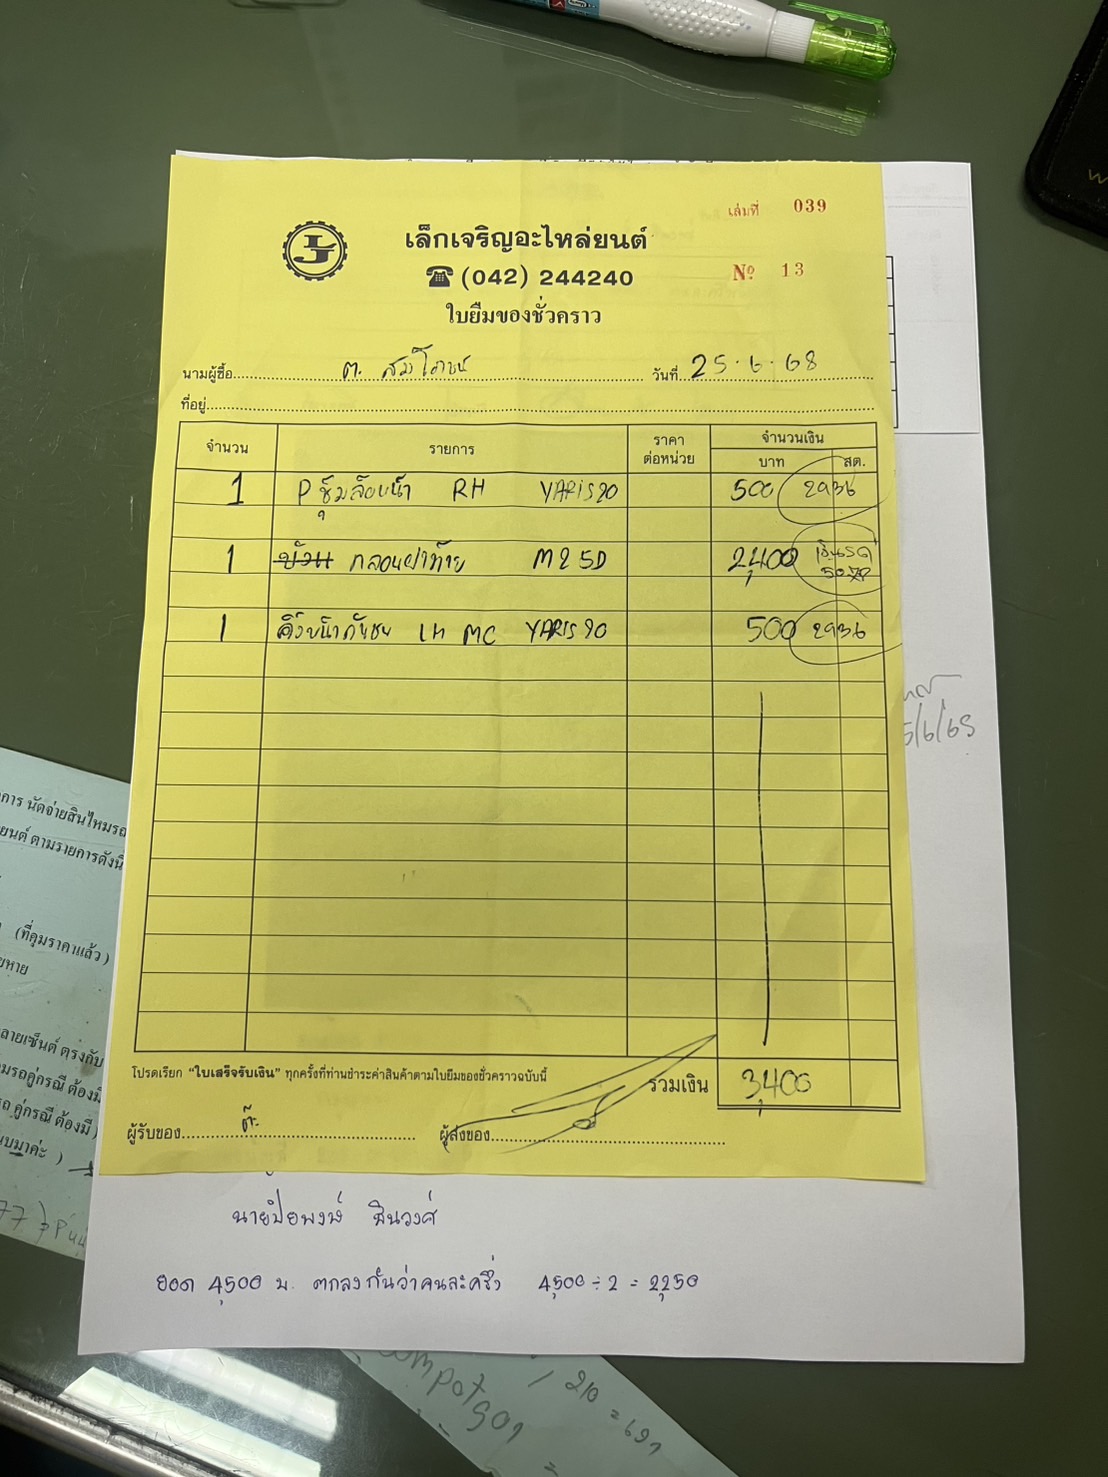 เล่มที่ 039
เล็กเจริญอะไหล่ยนต์
(042) 244240
Nº 13
ใบยืมของชั่วคราว
นามผู้ซื้อ ต. สมโภชน์ วันที่ 25.6.68
ที่อยู่
จำนวน รายการ ราคาต่อหน่วย จำนวนเงิน
บาท สต.
1 P ซุ้มล้อหน้า RH YARIS20 500 2936
1 กลอนฝาท้าย M25D 2,400
1 คิ้วหน้ากันชน LH MC YARIS 20 500 2936
5/6/68
การ นัดจ่ายสินไหมรถ
ยนต์ ตามรายการดังนี้
(ที่คุมราคาแล้ว)
ยหาย
ลายเซ็นต์ ตรงกับ
มรถคู่กรณี ต้องมี
ถ คู่กรณี ต้องมี)
นบมาค่ะ )
โปรดเรียก "ใบเสร็จรับเงิน" ทุกครั้งที่ท่านชำระค่าสินค้าตามใบยืมของชั่วคราวฉบับนี้ รวมเงิน 3,400
ผู้รับของ ต๊ะ ผู้ส่งของ
นายปิยพงษ์ สินวงศ์
ยอด 4,500 บ. ตกลงกันว่าคนละครึ่ง 4,500 ÷ 2 = 2,250
210 = 697